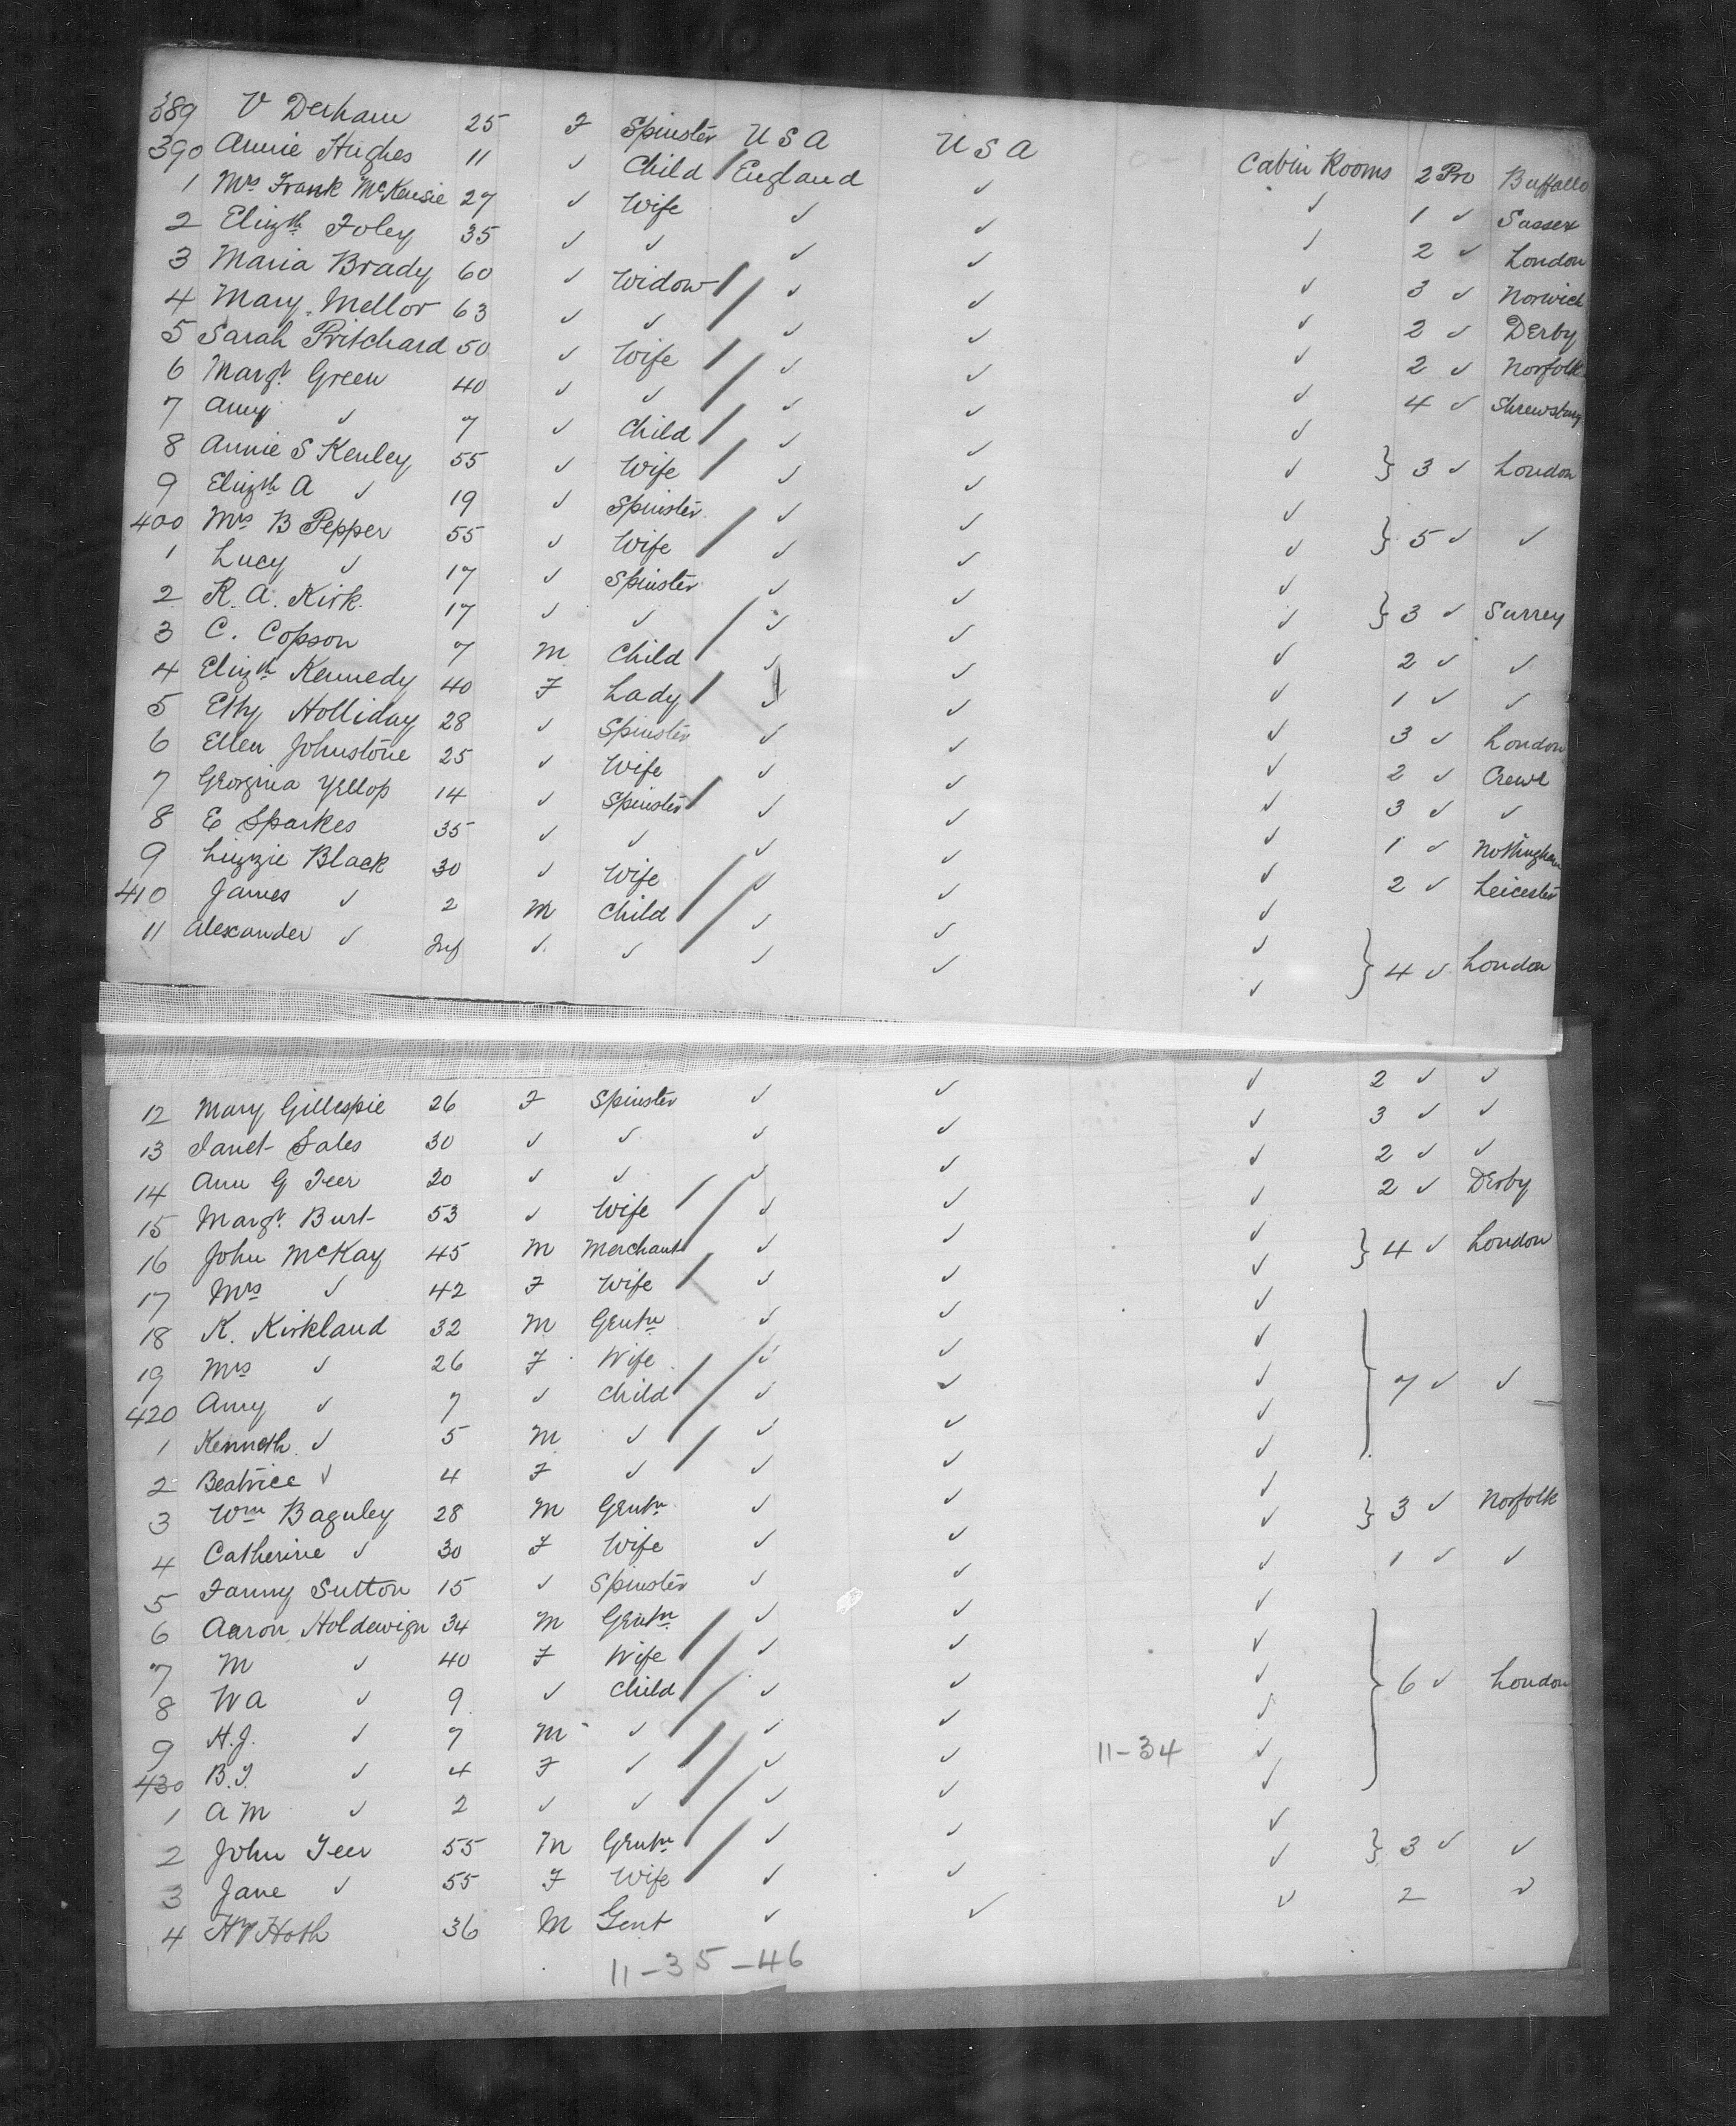 389 V Derham 25 F Spinster USA USA Cabin Rooms 2 Pro Buffallo
390 Annie Hughes 11 ✓ Child England ✓ ✓ 1 ✓ Sussex
1 Mrs Frank McKensie 27 ✓ Wife ✓ ✓ ✓ 2 ✓ London
2 Elizth Foley 35 ✓ ✓ ✓ ✓ ✓ 3 ✓ Norwich
3 Maria Brady 60 ✓ Widow ✓ ✓ ✓ 2 ✓ Derby
4 Mary Mellor 63 ✓ ✓ ✓ ✓ ✓ 2 ✓ Norfolk
5 Sarah Pritchard 50 ✓ Wife ✓ ✓ ✓ 4 ✓ Shrewsbury
6 Margt Green 40 ✓ ✓ ✓ ✓ ✓
7 Amy ✓ 7 ✓ Child ✓ ✓ ✓ } 3 ✓ London
8 Annie S Kenley 55 ✓ Wife ✓ ✓ ✓
9 Elizth A ✓ 19 ✓ Spinster ✓ ✓ ✓ } 5 ✓ ✓
400 Mrs B Pepper 55 ✓ Wife ✓ ✓ ✓
1 Lucy ✓ 17 ✓ Spinster ✓ ✓ ✓ } 3 ✓ Surrey
2 R. A. Kirk 17 ✓ ✓ ✓ ✓ ✓ 2 ✓ ✓
3 C. Copson 7 M Child ✓ ✓ ✓ 1 ✓ ✓
4 Elizth Kennedy 40 F Lady ✓ ✓ ✓ 3 ✓ London
5 Holliday 28 ✓ Spinster ✓ ✓ ✓ 2 ✓ Crewe
6 Ellen Johnstone 25 ✓ Wife ✓ ✓ ✓ 3 ✓ ✓
7 Georgina Yellop 14 ✓ Spinster ✓ ✓ ✓ 1 ✓ Nottingham
8 E Sparkes 35 ✓ ✓ ✓ ✓ ✓ 2 ✓ Leicester
9 Lizzie Black 30 ✓ Wife ✓ ✓ ✓
410 James ✓ 2 M Child ✓ ✓ ✓ } 4 ✓ London
11 Alexander ✓ Inf ✓ ✓ ✓ ✓ ✓
12 Mary Gillespie 26 F Spinster ✓ ✓ ✓ 2 ✓ ✓
13 Janet Sales 30 ✓ ✓ ✓ ✓ ✓ 3 ✓ ✓
14 Ann G Teer 20 ✓ ✓ ✓ ✓ ✓ 2 ✓ ✓
15 Margt Burt 53 ✓ Wife ✓ ✓ ✓ 2 ✓ Derby
16 John McKay 45 M Merchant ✓ ✓ ✓ } 4 ✓ London
17 Mrs ✓ 42 F Wife ✓ ✓ ✓
18 K. Kirkland 32 M Gentn ✓ ✓ ✓
19 Mrs ✓ 26 F Wife ✓ ✓ ✓
420 Amy ✓ 7 ✓ Child ✓ ✓ ✓ } 7 ✓ ✓
1 Kenneth ✓ 5 M ✓ ✓ ✓ ✓
2 Beatrice ✓ 4 F ✓ ✓ ✓ ✓
3 Wm Baguley 28 M Gentn ✓ ✓ ✓ } 3 ✓ Norfolk
4 Catherine ✓ 30 F Wife ✓ ✓ ✓
5 Fanny Sutton 15 ✓ Spinster ✓ ✓ ✓ 1 ✓ ✓
6 Aaron Holdewign 34 M Gentn ✓ ✓ ✓
7 M ✓ 40 F Wife ✓ ✓ ✓
8 W A ✓ 9 ✓ Child ✓ ✓ ✓ } 6 ✓ London
9 H.J. ✓ 7 M ✓ ✓ ✓ ✓
430 B.J. ✓ 4 F ✓ ✓ ✓ 11-34 ✓
1 A M ✓ 2 ✓ ✓ ✓ ✓ ✓
2 John Teer 55 M Gentn ✓ ✓ ✓ } 3 ✓ ✓
3 Jane ✓ 55 F Wife ✓ ✓ ✓
4 Hy Hoth 36 M Gent ✓ ✓ ✓ 2 ✓
11-35-46